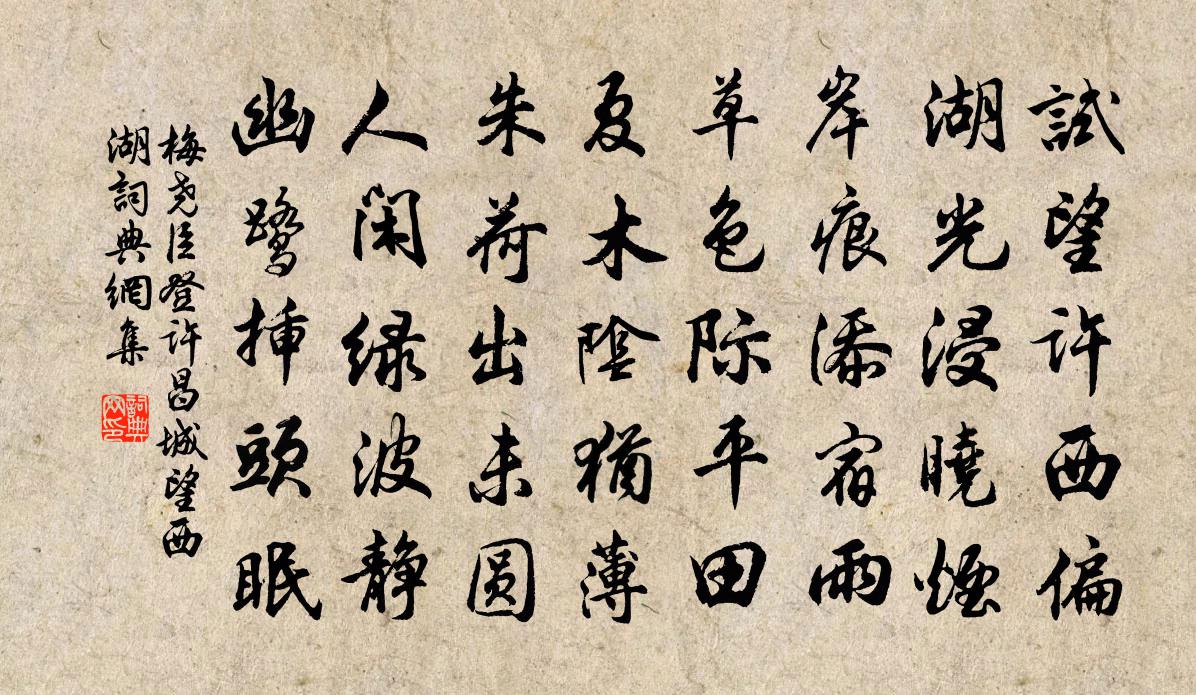 試望許西偏
湖光浸曉煙
岸痕添宿雨
草色际平田
夏木陰猶薄
朱荷出未圆
人闲绿波静
幽鹭插頭眠
梅尧臣登许昌城望西
湖詞典網集
詞典网印